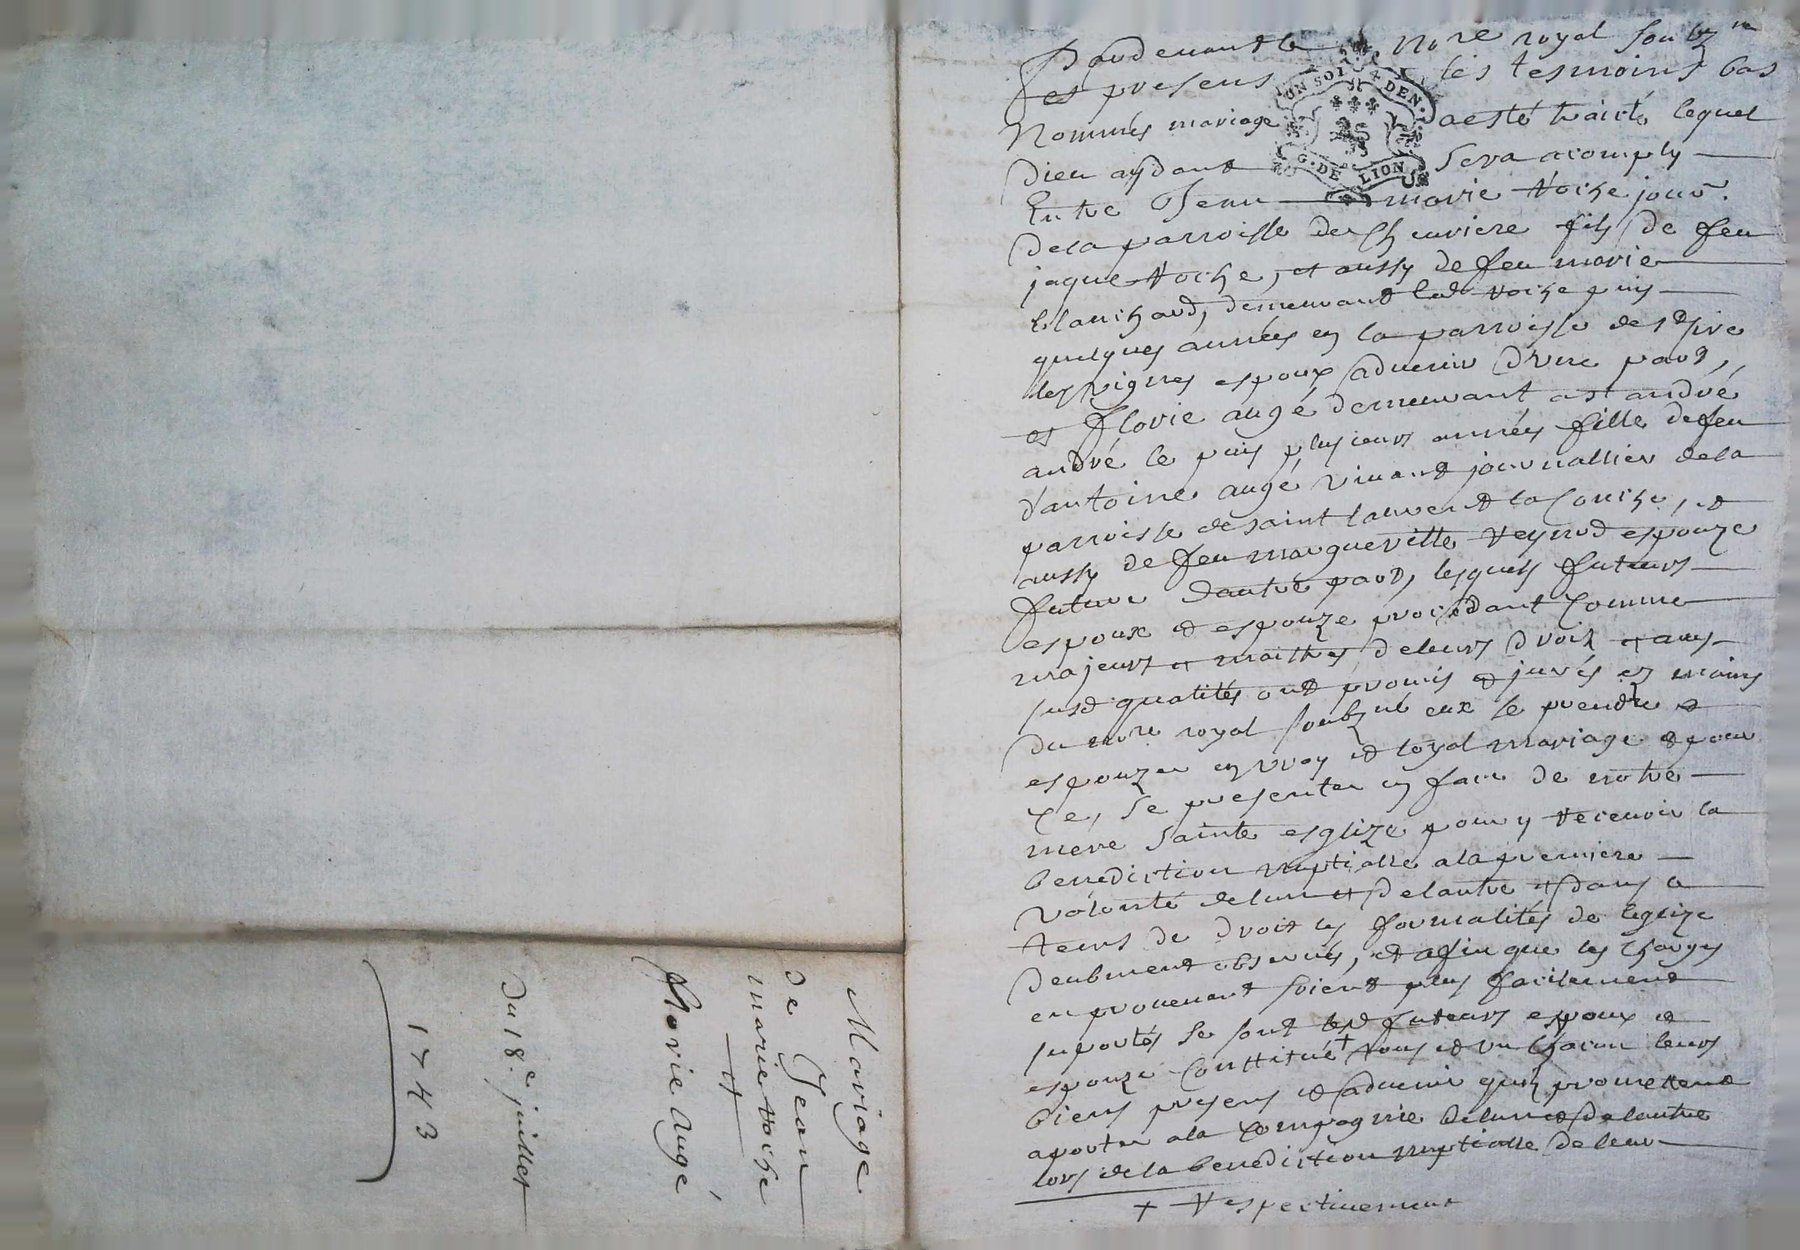 Pardevant le nore royal soubzne
et presens les tesmoins bas
Nommés mariage a esté traicté lequel
Dieu aydant sera acomply
Entre Jean marie Roche jour.
de la parroisse de Cheuriere fils de feu
jaque Roche, et aussy de feu marie
blanchard, demeurant led. Roche puis
quelques années en la parroisse de
les vignes espoux aduenir d'vne part,
et florie augé demeurant a st andré
andré le puis plusieurs années fille de feu
d'antoine augé viuant journallier de la
parroisse de saint laurent la Conche, et
aussy de feu margueritte Reynod espouze
future d'autre part, lesquels futeurs
espoux et espouze procedant Comme
majeurs et maistres de leurs droits et aux
susd. qualités ont promis et jurés es mains
du nore royal soubzné eux se prendre et
espouzer en vray et loyal mariage et pour
Ce, se presenter en face de notre
mere sainte esglize pour y Receuoir la
benediction nuptialle a la premiere
volonté de lun et de lautre et dans le
tems de droit les formalités de leglize
deubment obserués, et afin que les Charges
en prouenant soient plus facilement
suportés se sont lesd. futeurs espoux et
espouze Constitué + tous et vn Chacun leurs
biens presens et aduenir quils promettent
aporter a la Compagnie de lun et de lautre
lors de la benediction nuptialle de leur
+ Respectiuement
UN SOL DEN.
G. DE LION
Mariage
de Jean
marie Roche
et
florie Augé
Du 18e juillet
1743